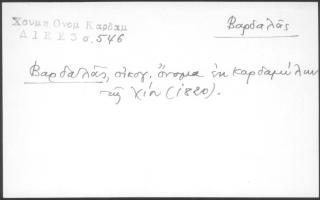 Χουμπ Ονομ Καρδαμ
ΔΙΕΕ3 σ.546
Βαρδαλᾶς
Βαρδαλᾶς, οἰκογ. ὄνομα ἐν Καρδαμύλοις
τῆς Χίου (1820).